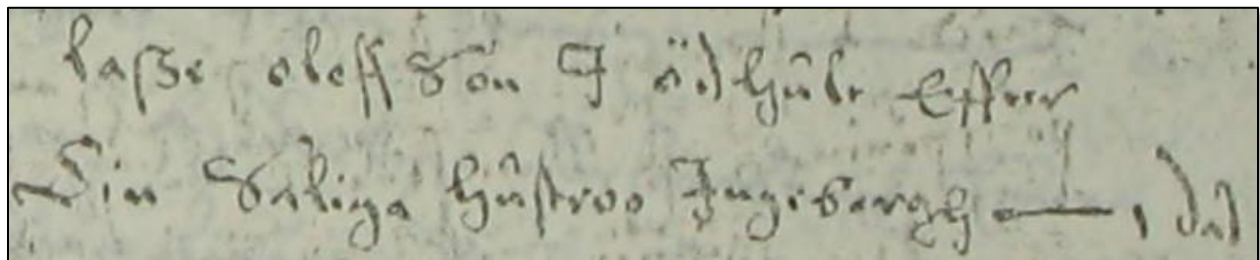 lasse oleffson I ödhule Effter
Sin Saliga hustroo Ingeborgh — 1 dal